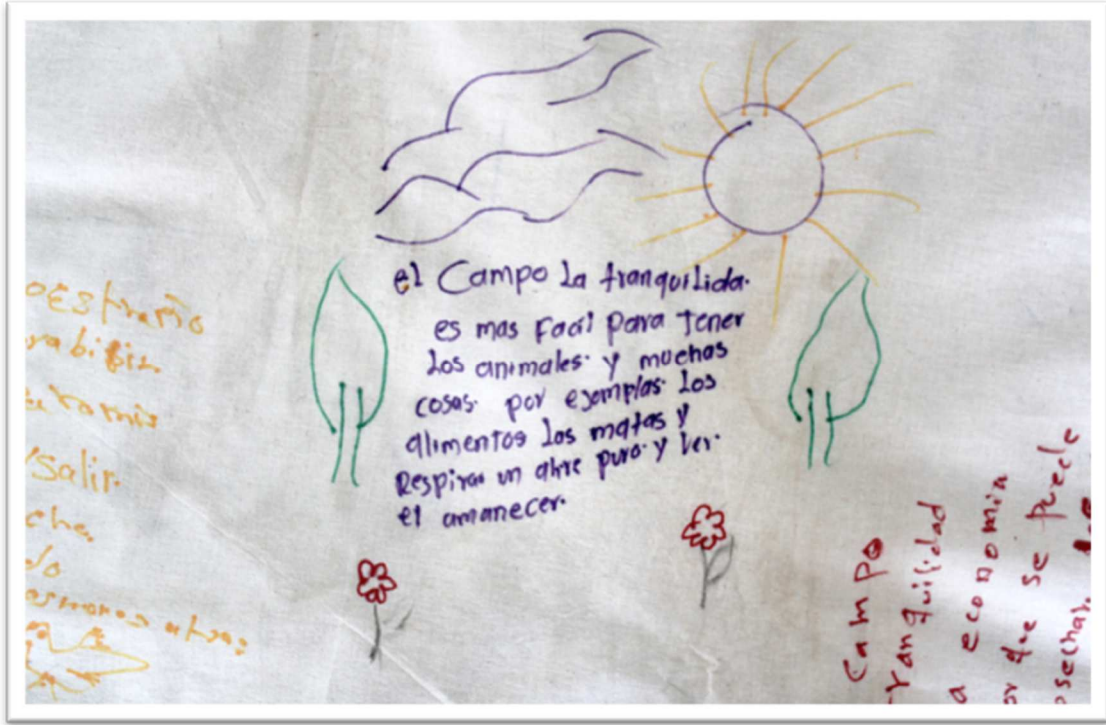 el Campo La tranquilida.
es mas Facil Para Tener
Los animales. y muchas
cosas. por ejemplos. Los
alimentos Las matas y
Respirar un ahre puro. y ver.
el amanecer.
salir.
che.
do
Campo
ranquilidad
a economia
or que se puede
osechar.